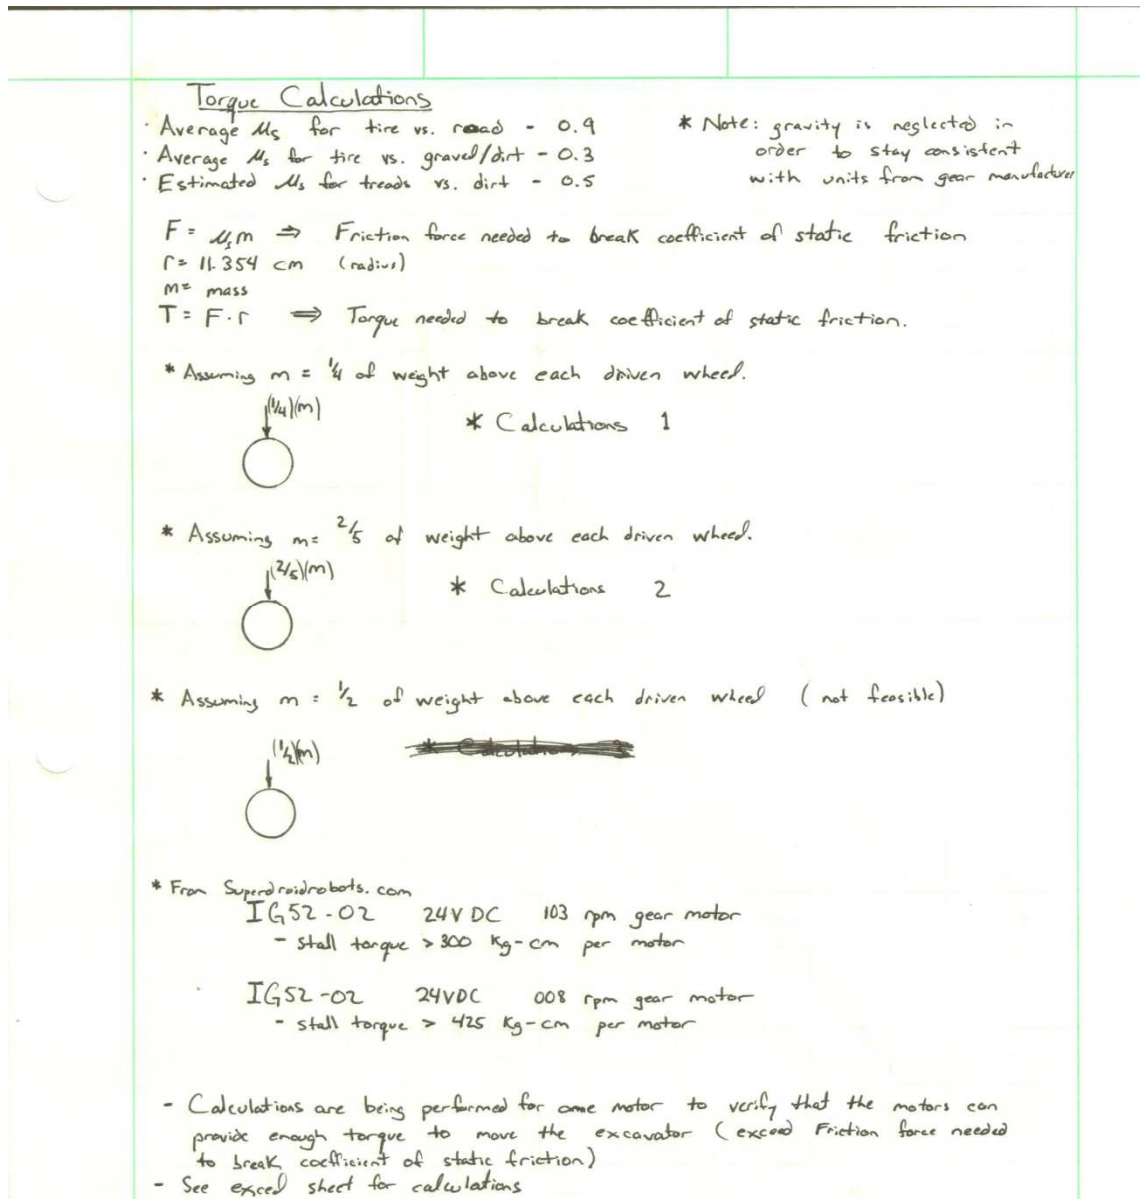 Torque Calculations
· Average μs for tire vs. road - 0.9
· Average μs for tire vs. gravel/dirt - 0.3
· Estimated μs for treads vs. dirt - 0.5
* Note: gravity is neglected in
order to stay consistent
with units from gear manufacturer
F = μsm ⇒ Friction force needed to break coefficient of static friction
r = 11.354 cm (radius)
m = mass
T = F·r ⇒ Torque needed to break coefficient of static friction.
* Assuming m = 1/4 of weight above each driven wheel.
(1/4)(m)
* Calculations 1
* Assuming m = 2/5 of weight above each driven wheel.
(2/5)(m)
* Calculations 2
* Assuming m = 1/2 of weight above each driven wheel (not feasible)
(1/2)(m)
* From Superdroidrobots.com
IG52-02 24V DC 103 rpm gear motor
- stall torque > 300 Kg-cm per motor
IG52-02 24VDC 008 rpm gear motor
- stall torque > 425 Kg-cm per motor
- Calculations are being performed for one motor to verify that the motors can
provide enough torque to move the excavator (exceed Friction force needed
to break coefficient of static friction)
- See excel sheet for calculations